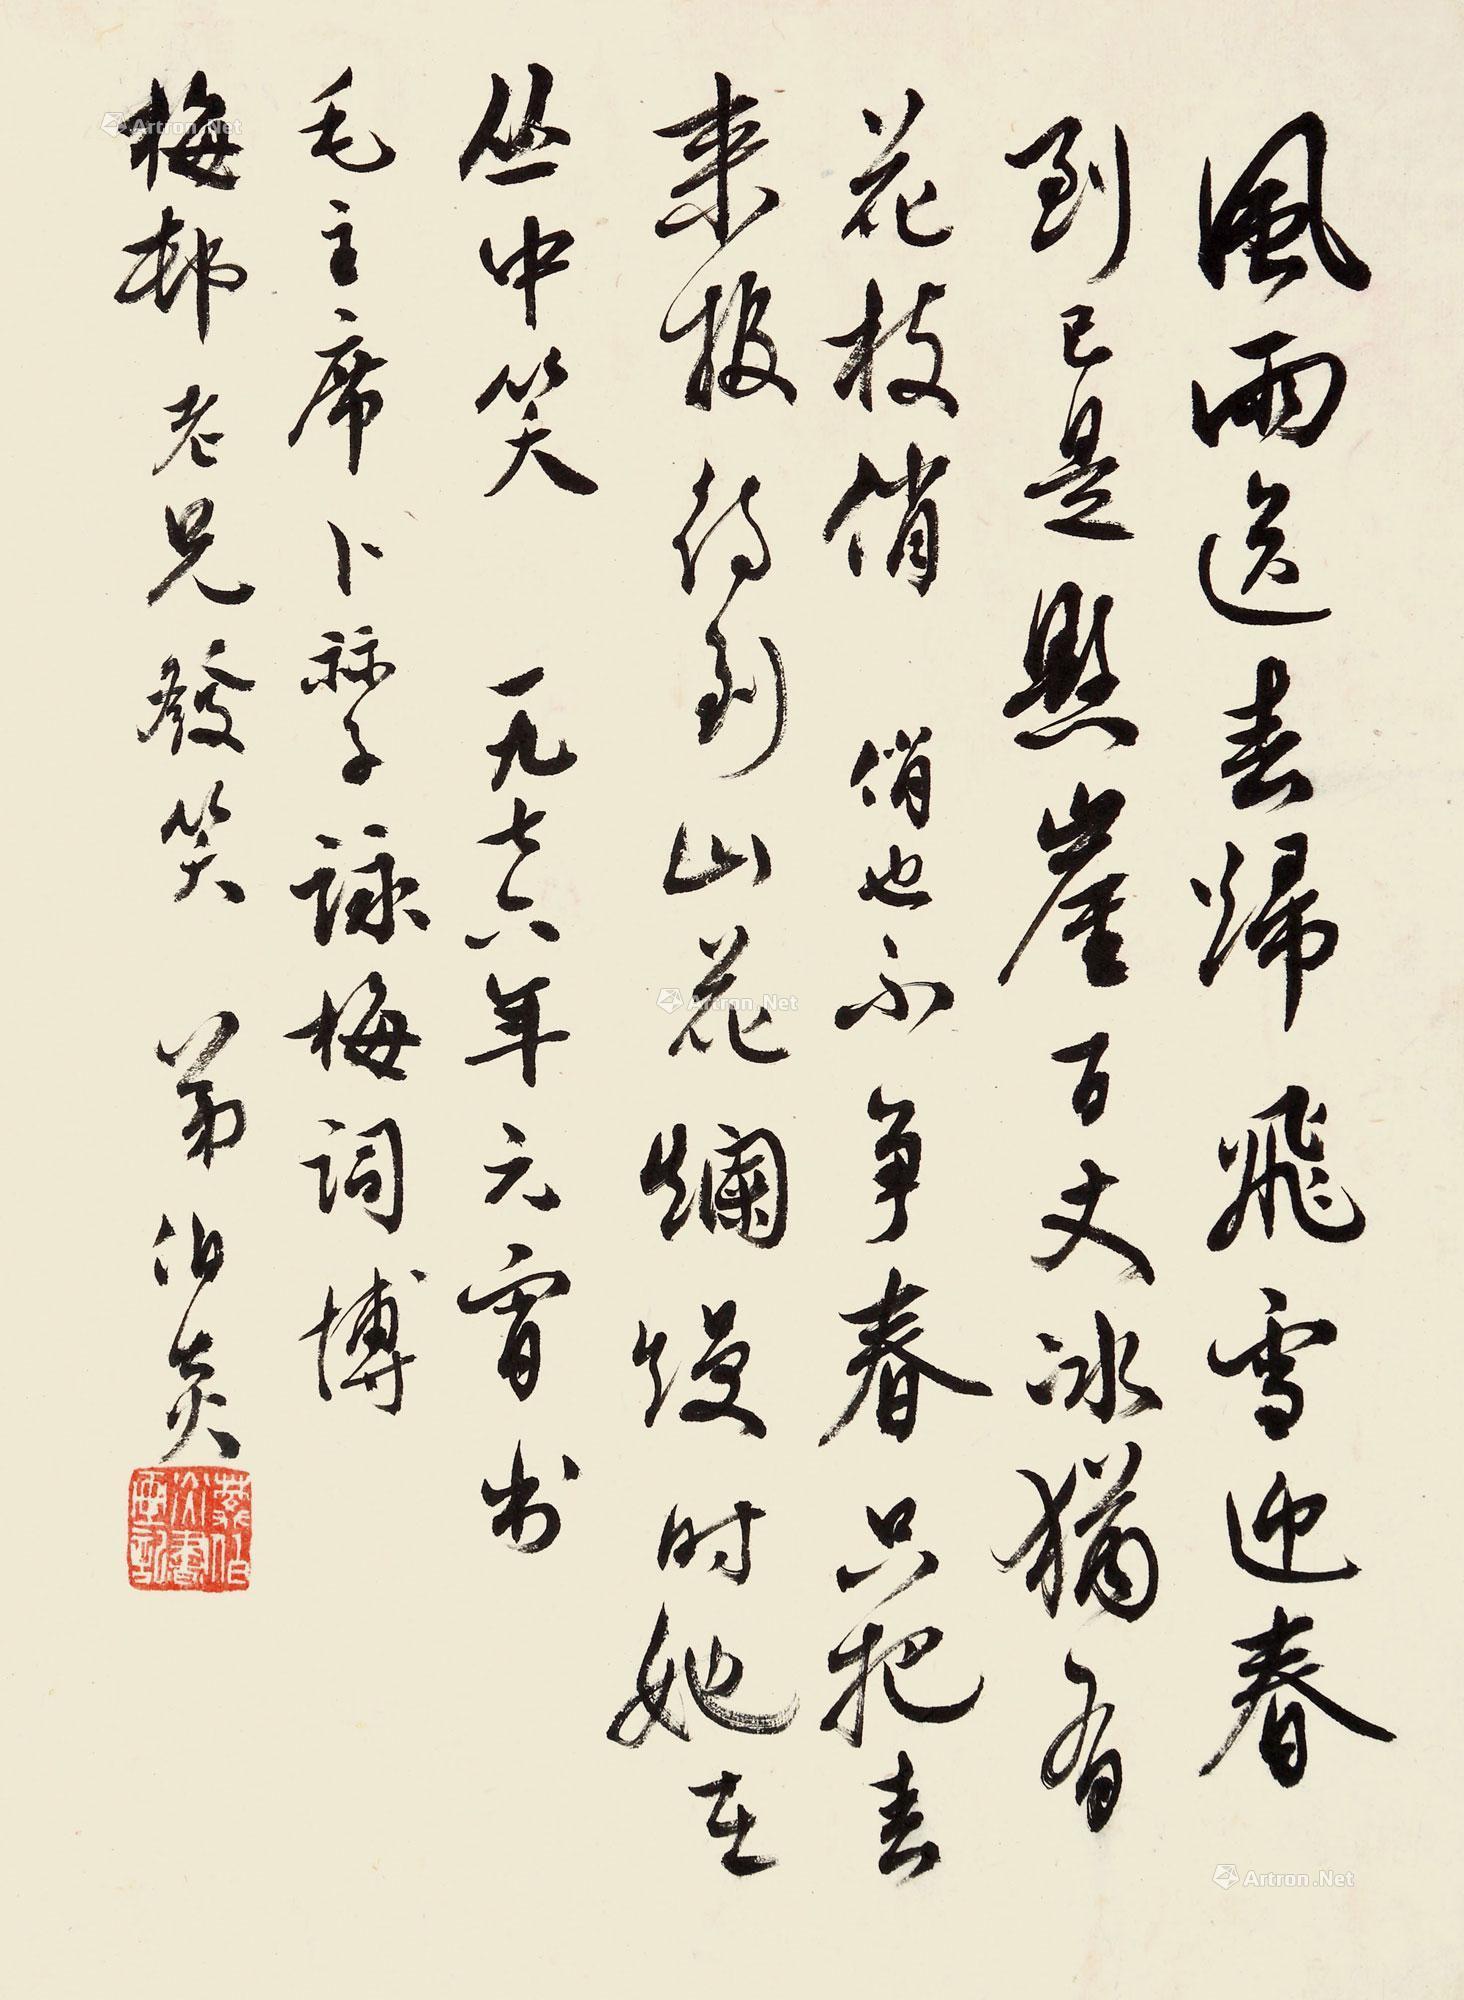 風雨送春歸飛雪迎春
到已是懸崖百丈冰猶有
花枝俏 俏也不争春只把春
来报待到山花爛熳时她在
丛中笑 一九七六年元宵书
毛主席卜祘子詠梅詞博
梅邨老兄發笑 弟伯炎
Artron.Net
Artron.Net
Artron.Net